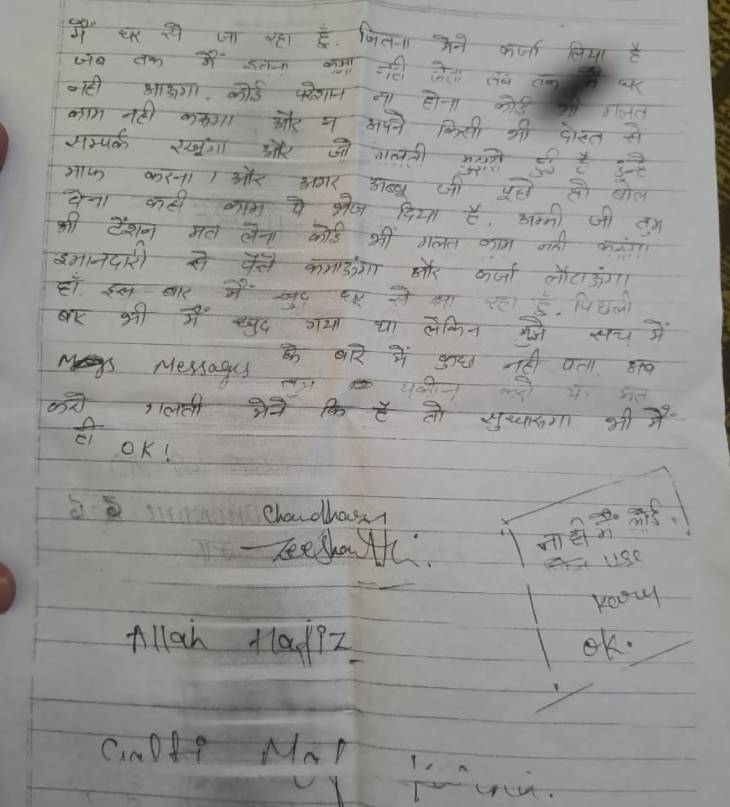 मैं घर से जा रहा हूँ. जितना मैने कर्जा लिया है
जब तक मैं इतना कमा नही लेता तब तक मैं घर
नही आऊंगा. कोई परेशान ना होना कोई भी गलत
काम नही करूगा और न अपने किसी भी दोस्त से
सम्पर्क रखूंगा और जो गलती मुझसे हुई है
माफ करना। और अगर अब्बू जी पूछे तो बोल
देना कही काम पे भेज दिया है. अम्मी जी तुम
भी टेंशन मत लेना कोई भी गलत काम नही करूंगा
इमानदारी से पैसे कमाऊंगा और कर्जा लौटाऊंगा
हाँ इस बार मैं खुद घर से जा रहा हूँ. पिछली
बार भी मैं खुद गया था लेकिन मुझे सच में
Messages के बारे में कुछ नही पता. अब
तुम यकीन करो या मत
करो गलती मैने कि है तो सुधारूगा भी मैं
ही OK!
Chaudhary
Zeeshan Ali.
ना ही मैं कोई
use
karu
OK.
Allah Hafiz